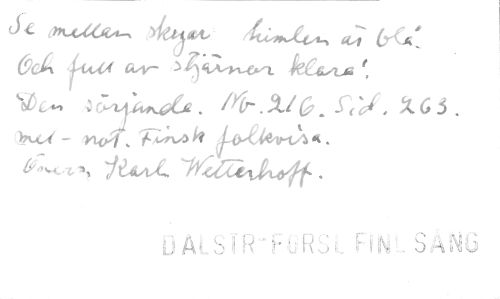 Se mellan skyar himlen är blå!
Och full av stjärnor klara!
Den sörjande. No. 216. Sid. 263.
mel-not. Finsk folkvisa.
Övers. Karl Wetterhoff.
DALSTR-FORSL FINL SÅNG